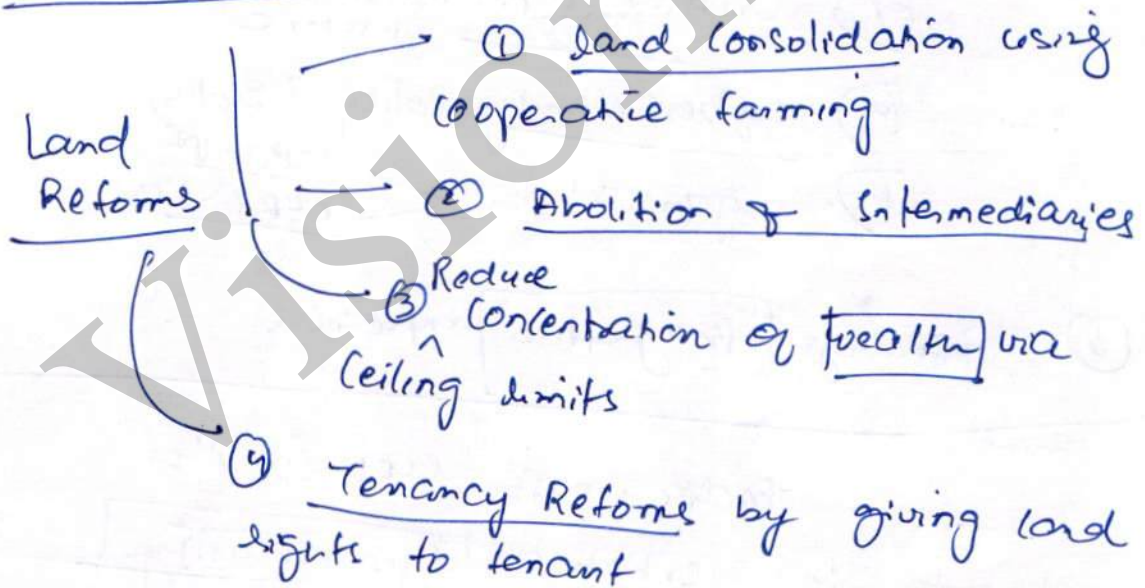 Land
Reforms
① land consolidation using
cooperative farming
② Abolition of Intermediaries
③ Reduce
Concentration of wealth via
Ceiling limits
④ Tenancy Reforms by giving land
rights to tenant
Vision